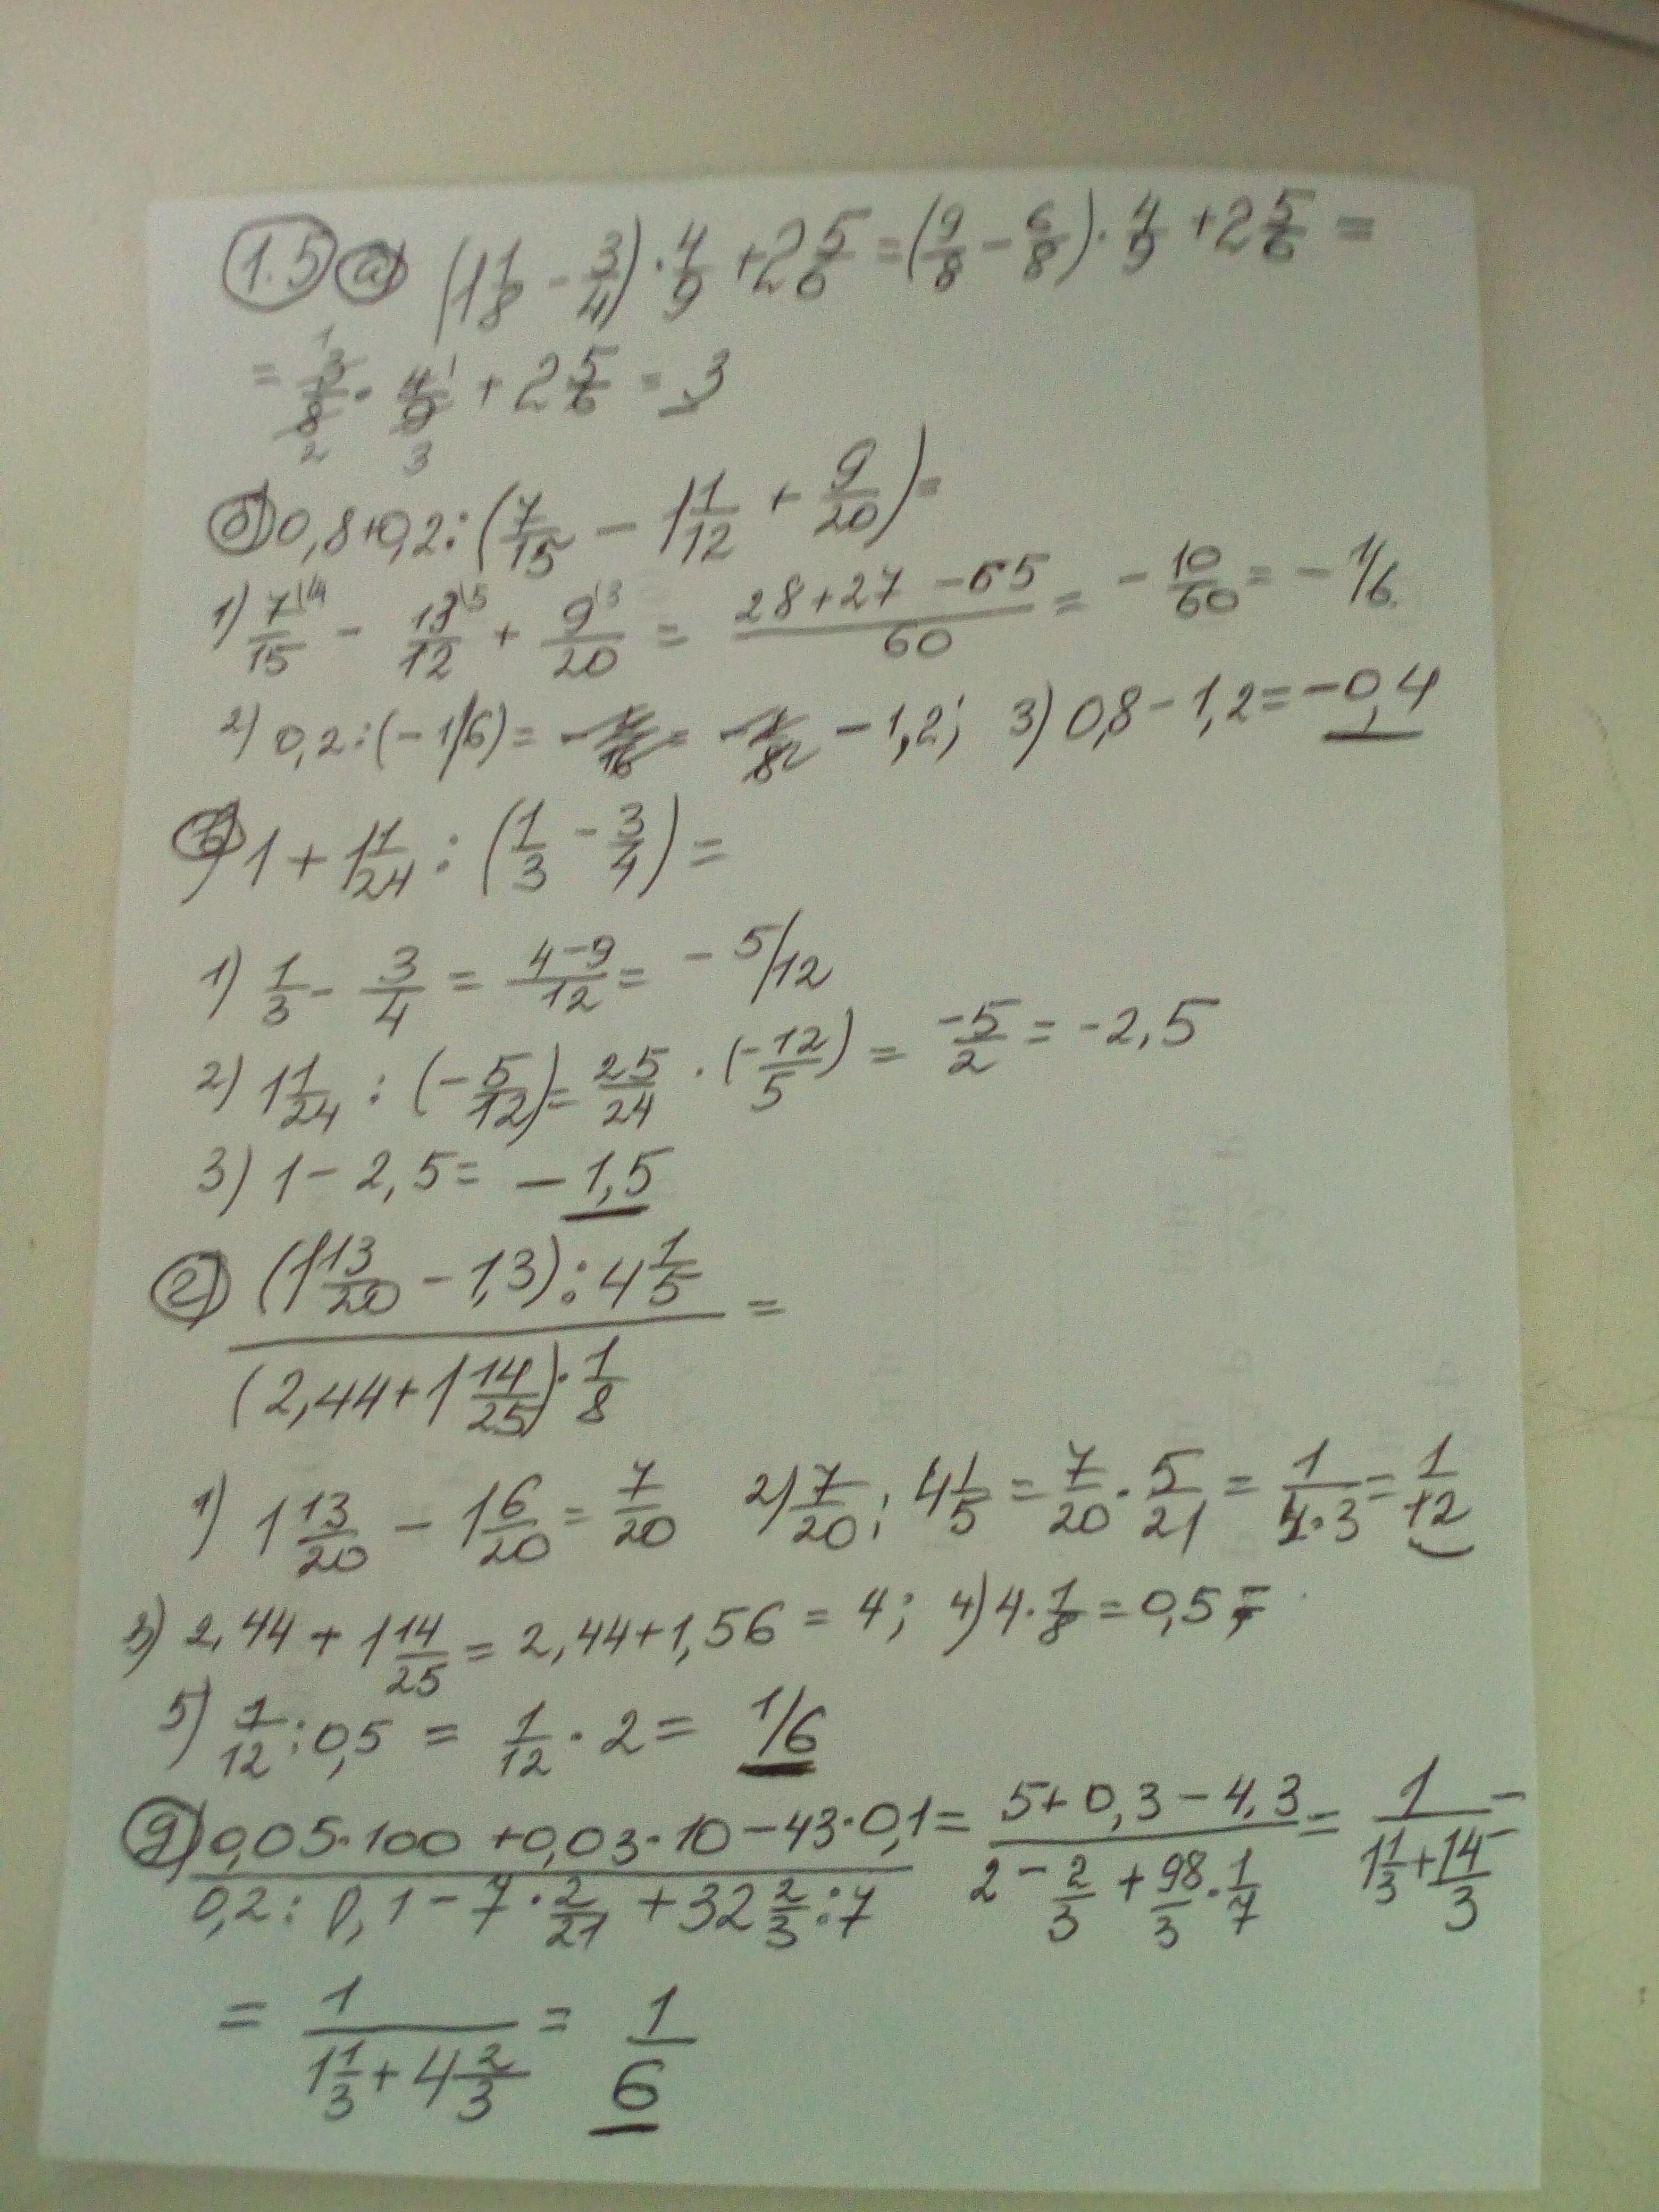 1.5 а) (1 1/8 - 3/4) · 4/9 + 2 5/6 = (9/8 - 6/8) · 4/9 + 2 5/6 =
= 3/8 · 4/9 + 2 5/6 = 3
б) 0,8+0,2 : (7/15 - 1 1/12 + 9/20) =
1) 7/15 - 13/12 + 9/20 = (28+27-65)/60 = - 10/60 = - 1/6
2) 0,2 : (-1/6) = - 1,2; 3) 0,8 - 1,2 = -0,4
в) 1 + 1 1/24 : (1/3 - 3/4) =
1) 1/3 - 3/4 = (4-9)/12 = - 5/12
2) 1 1/24 : (- 5/12) = 25/24 · (-12/5) = -5/2 = -2,5
3) 1 - 2,5 = - 1,5
г) ((1 13/20 - 1,3) : 4 1/5) / ((2,44 + 1 14/25) · 1/8) =
1) 1 13/20 - 1 6/20 = 7/20 2) 7/20 : 4 1/5 = 7/20 · 5/21 = 1/(4·3) = 1/12
3) 2,44 + 1 14/25 = 2,44+1,56 = 4; 4) 4 · 1/8 = 0,5
5) 1/12 : 0,5 = 1/12 · 2 = 1/6
g) (0,05·100 + 0,03·10 - 43·0,1) / (0,2 : 0,1 - 7 · 2/21 + 32 2/3 : 7) = (5+0,3-4,3) / (2 - 2/3 + 98/3 · 1/7) = 1 / (1 1/3 + 14/3) =
= 1 / (1 1/3 + 4 2/3) = 1/6